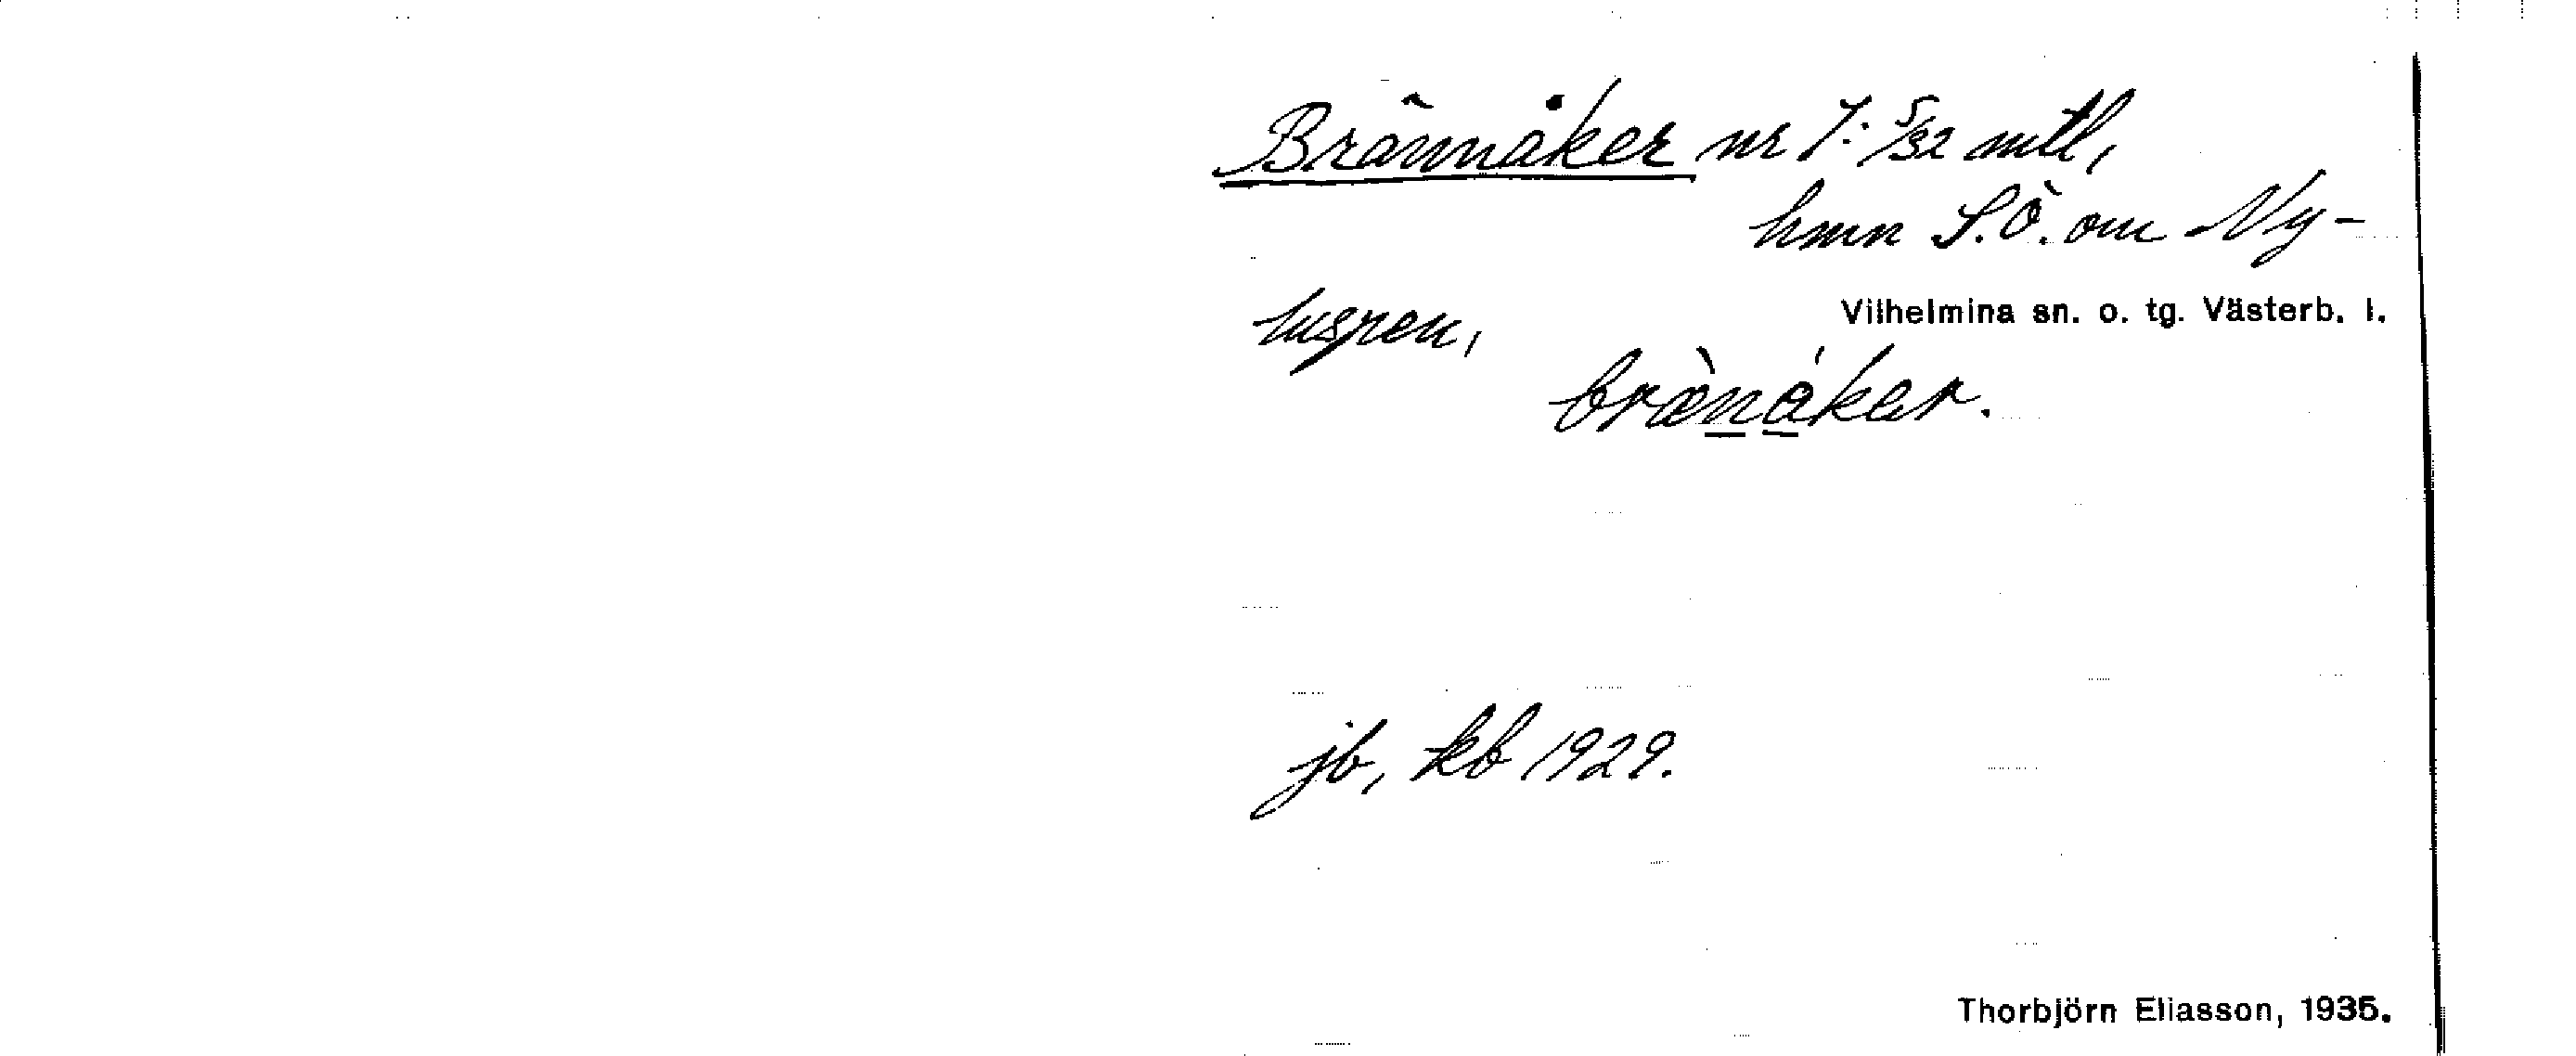 Brännåker nr 1: 5/32 mtl,
hmn S.Ö. om Ny-
luspen,
Vilhelmina sn. o. tg. Västerb. l.
brænåker.
jb, kb 1929.
Thorbjörn Eliasson, 1935.